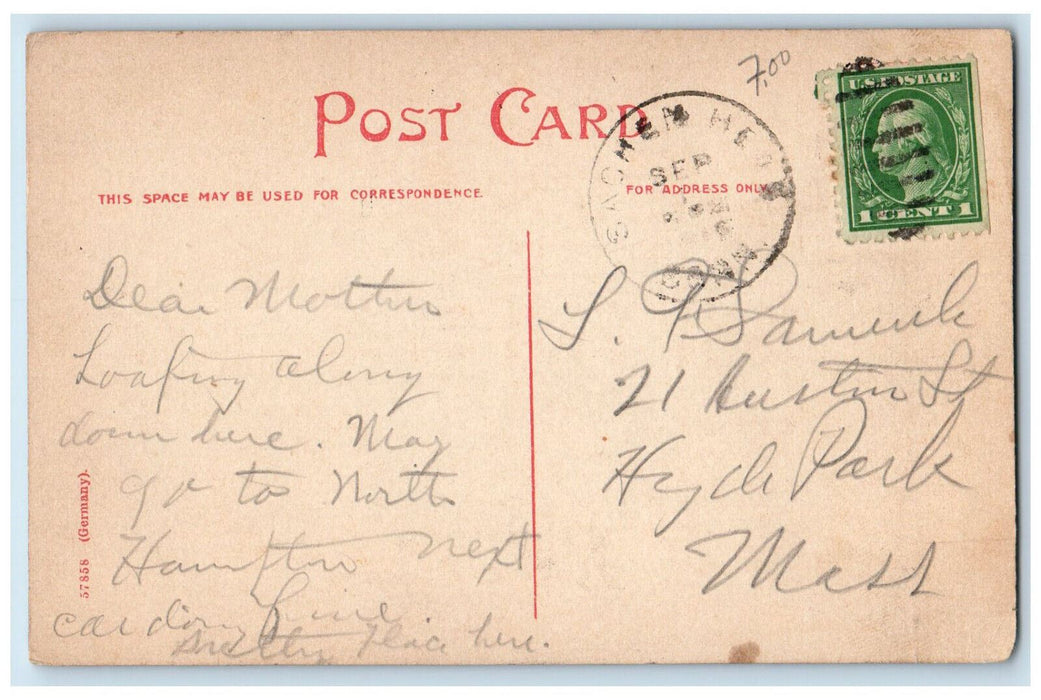 7.00
U.S. POSTAGE
1 CENT 1
POST CARD
SACHEM HEAD
SEP
CONN.
THIS SPACE MAY BE USED FOR CORRESPONDENCE.
FOR ADDRESS ONLY.
Dear Mother
Loafing along
down here. May
go to North
Hampton next
car doing fine.
pretty place here.
S. F.
21 Austin St
Hyde Park
Mass
57858 (Germany).